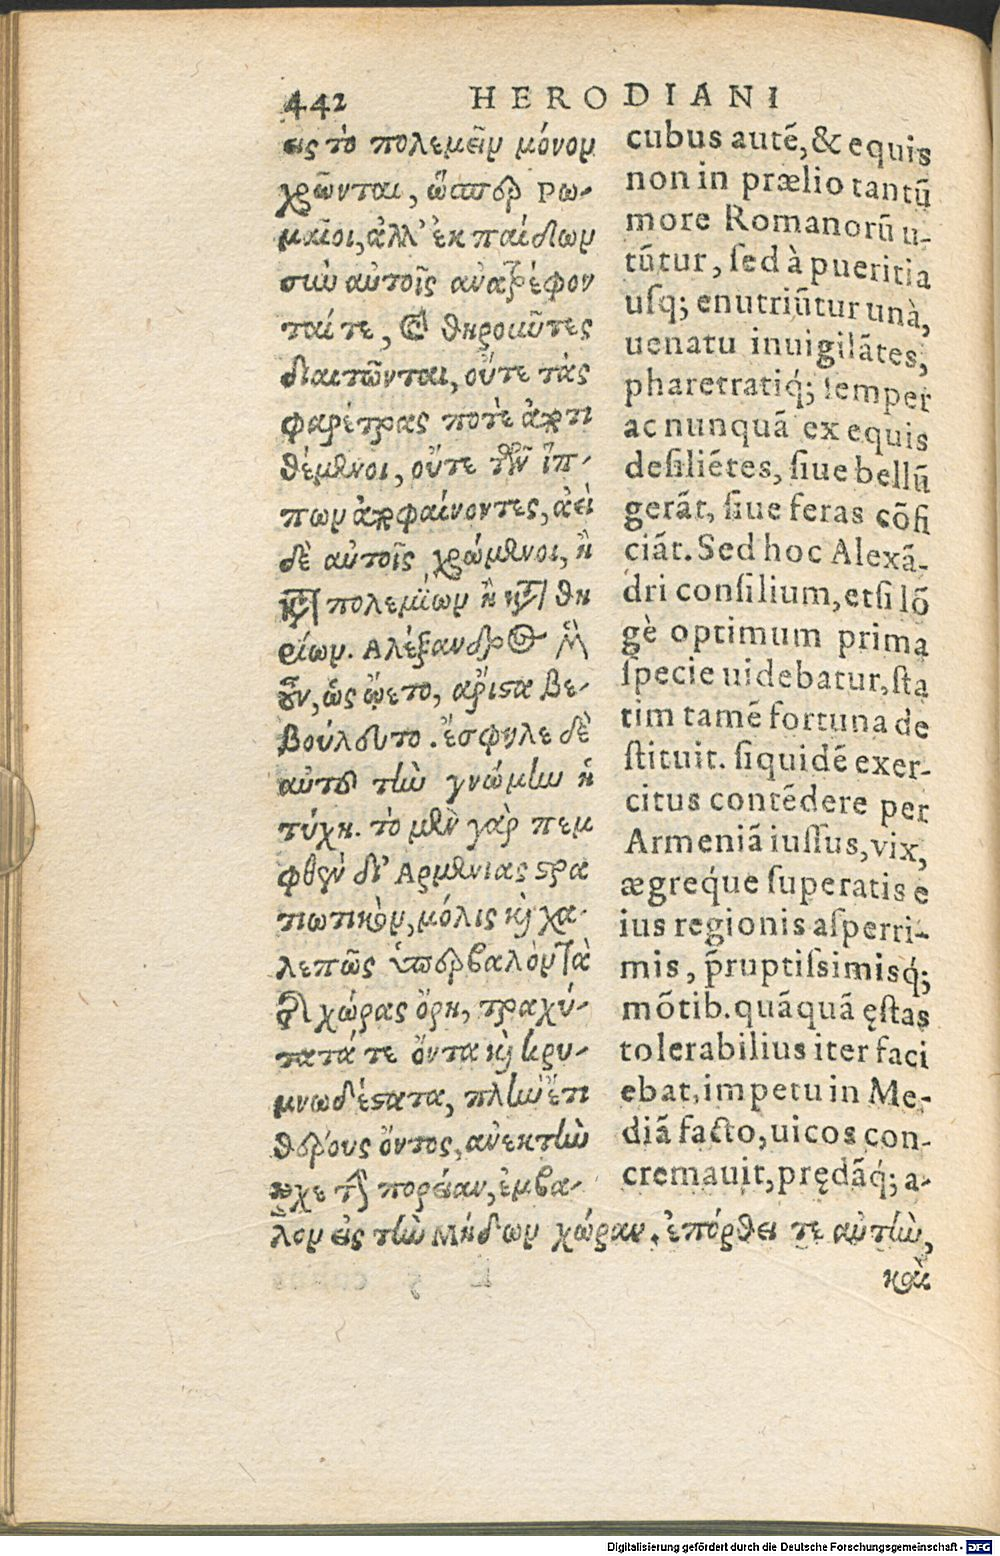 442 HERODIANI
εις τὸ πολεμεῖν μόνον
χρῶνται, ὥσπερ Ρω-
μαῖοι, ἀλλ' ἐκ παίδων
σιὺ αὐτοῖς ἀνατρέφον
ταί τε, καὶ θηρῶντες
διαιτῶνται, οὔτε τὰς
φαρέτρας ποτὲ ἀπτι
θέμενοι, οὔτε τῶν ἵπ-
πων ἀπφαίνοντες, ἀεὶ
δὲ αὐτοῖς χρώμενοι, ἢ
κατὰ πολεμίων ἢ κατὰ θη
ρίων. Αλέξανδρος μὲν
οὖν, ὡς ᾤετο, ἄριστα βε-
βούλευτο. ἔσφηλε δὲ
αὐτοῦ τὴν γνώμην ἡ
τύχη. τὸ μὲν γὰρ πεμ
φθὲν δι' Αρμενίας στρα
τιωτικὸν, μόλις καὶ χα-
λεπῶς ὑπερβαλὸν τὰ
τῆς χώρας ὄρη, τραχύ-
τατά τε ὄντα καὶ κρη-
μνωδέστατα, πλὴν ἔτι
θέρους ὄντος, ἀνεκτὴν
εἶχε τὴν πορείαν, ἐμβα-
λὸν εἰς τὴν Μήδων χώραν, ἐπόρθει τε αὐτὴν,
καὶ
cubus autẽ, & equis
non in prælio tantũ
more Romanorũ u-
tũtur, sed à pueritia
usq; enutriũtur unà,
uenatu inuigilãtes,
pharetratiq́; semper
ac nunquã ex equis
desiliẽtes, siue bellũ
gerãt, siue feras cõfi
ciãt. Sed hoc Alexã-
dri consilium, etsi lõ
gè optimum prima
specie uidebatur, sta
tim tamẽ fortuna de
stituit. siquidẽ exer-
citus contẽdere per
Armeniã iussus, vix,
ægreq́ue superatis e
ius regionis asperri-
mis, p̃ruptissimisq́;
mõtib. quãquã ęstas
tolerabilius iter faci
ebat, impetu in Me-
diã facto, uicos con-
cremauit, prędãq́; a-
Digitalisierung gefördert durch die Deutsche Forschungsgemeinschaft - DFG